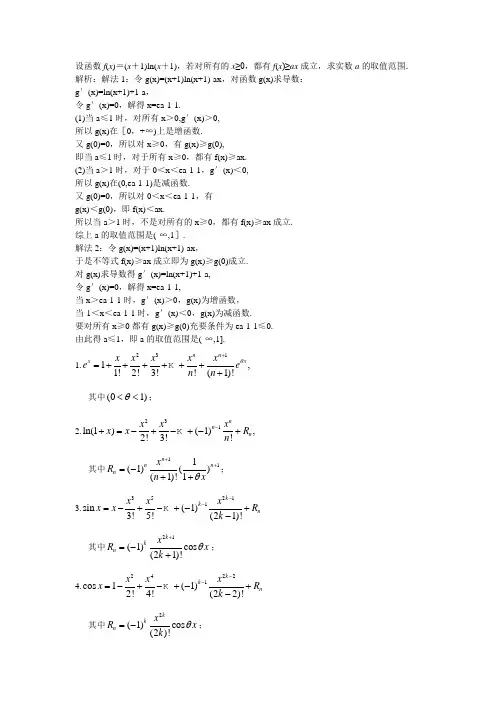 设函数 f(x)＝(x＋1)ln(x＋1)，若对所有的 x≥0，都有 f(x)≥ax 成立，求实数 a 的取值范围.
解析：解法 1：令 g(x)=(x+1)ln(x+1)-ax，对函数 g(x)求导数：
g′(x)=ln(x+1)+1-a，
令 g′(x)=0，解得 x=ea-1-1.
(1)当 a≤1 时，对所有 x＞0,g′(x)＞0,
所以 g(x)在［0，+∞)上是增函数.
又 g(0)=0，所以对 x≥0，有 g(x)≥g(0),
即当 a≤1 时，对于所有 x≥0，都有 f(x)≥ax.
(2)当 a＞1 时，对于 0＜x＜ea-1-1，g′(x)＜0,
所以 g(x)在(0,ea-1-1)是减函数.
又 g(0)=0，所以对 0＜x＜ea-1-1，有
g(x)＜g(0)，即 f(x)＜ax.
所以当 a＞1 时，不是对所有的 x≥0，都有 f(x)≥ax 成立.
综上 a 的取值范围是(-∞,1］.
解法 2：令 g(x)=(x+1)ln(x+1)-ax，
于是不等式 f(x)≥ax 成立即为 g(x)≥g(0)成立.
对 g(x)求导数得 g′(x)=ln(x+1)+1-a,
令 g′(x)=0，解得 x=ea-1-1,
当 x＞ea-1-1 时，g′(x)＞0，g(x)为增函数，
当-1＜x＜ea-1-1 时，g′(x)＜0，g(x)为减函数.
要对所有 x≥0 都有 g(x)≥g(0)充要条件为 ea-1-1≤0.
由此得 a≤1，即 a 的取值范围是(-∞,1].
1. e^x = 1 + x/1! + x^2/2! + x^3/3! + K + x^n/n! + x^(n+1)/(n+1)! e^(θx),
其中(0 < θ < 1)；
2. ln(1+x) = x - x^2/2! + x^3/3! - K + (-1)^(n-1) x^n/n! + R_n,
其中 R_n = (-1)^n x^(n+1)/(n+1)! (1/(1+θx))^(n+1)；
3. sin x = x - x^3/3! + x^5/5! - K + (-1)^(k-1) x^(2k-1)/(2k-1)! + R_n
其中 R_n = (-1)^k x^(2k+1)/(2k+1)! cos θx；
4. cos x = 1 - x^2/2! + x^4/4! - K + (-1)^(k-1) x^(2k-2)/(2k-2)! + R_n
其中 R_n = (-1)^k x^(2k)/(2k)! cos θx；